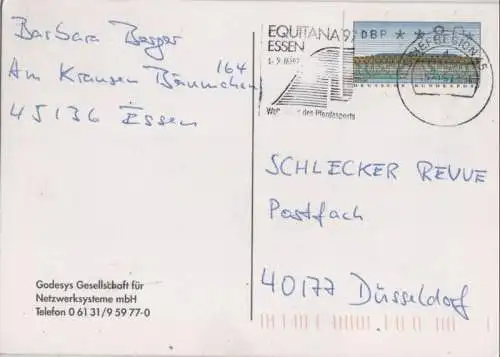 Barbara Berger
Am Krausen Bäumchen 164
45136 Essen
EQUITANA '9
ESSEN
des Pferdesports
DBP
BRIEFREGION 45
DEUTSCHE BUNDESPOST
SCHLECKER REVUE
Postfach
40177 Düsseldorf
Godesys Gesellschaft für
Netzwerksysteme mbH
Telefon 0 61 31/9 59 77-0